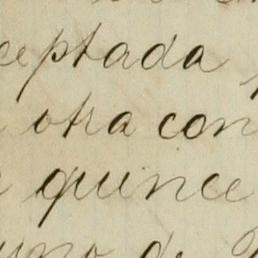 ceptada
otra con
quince
uno de